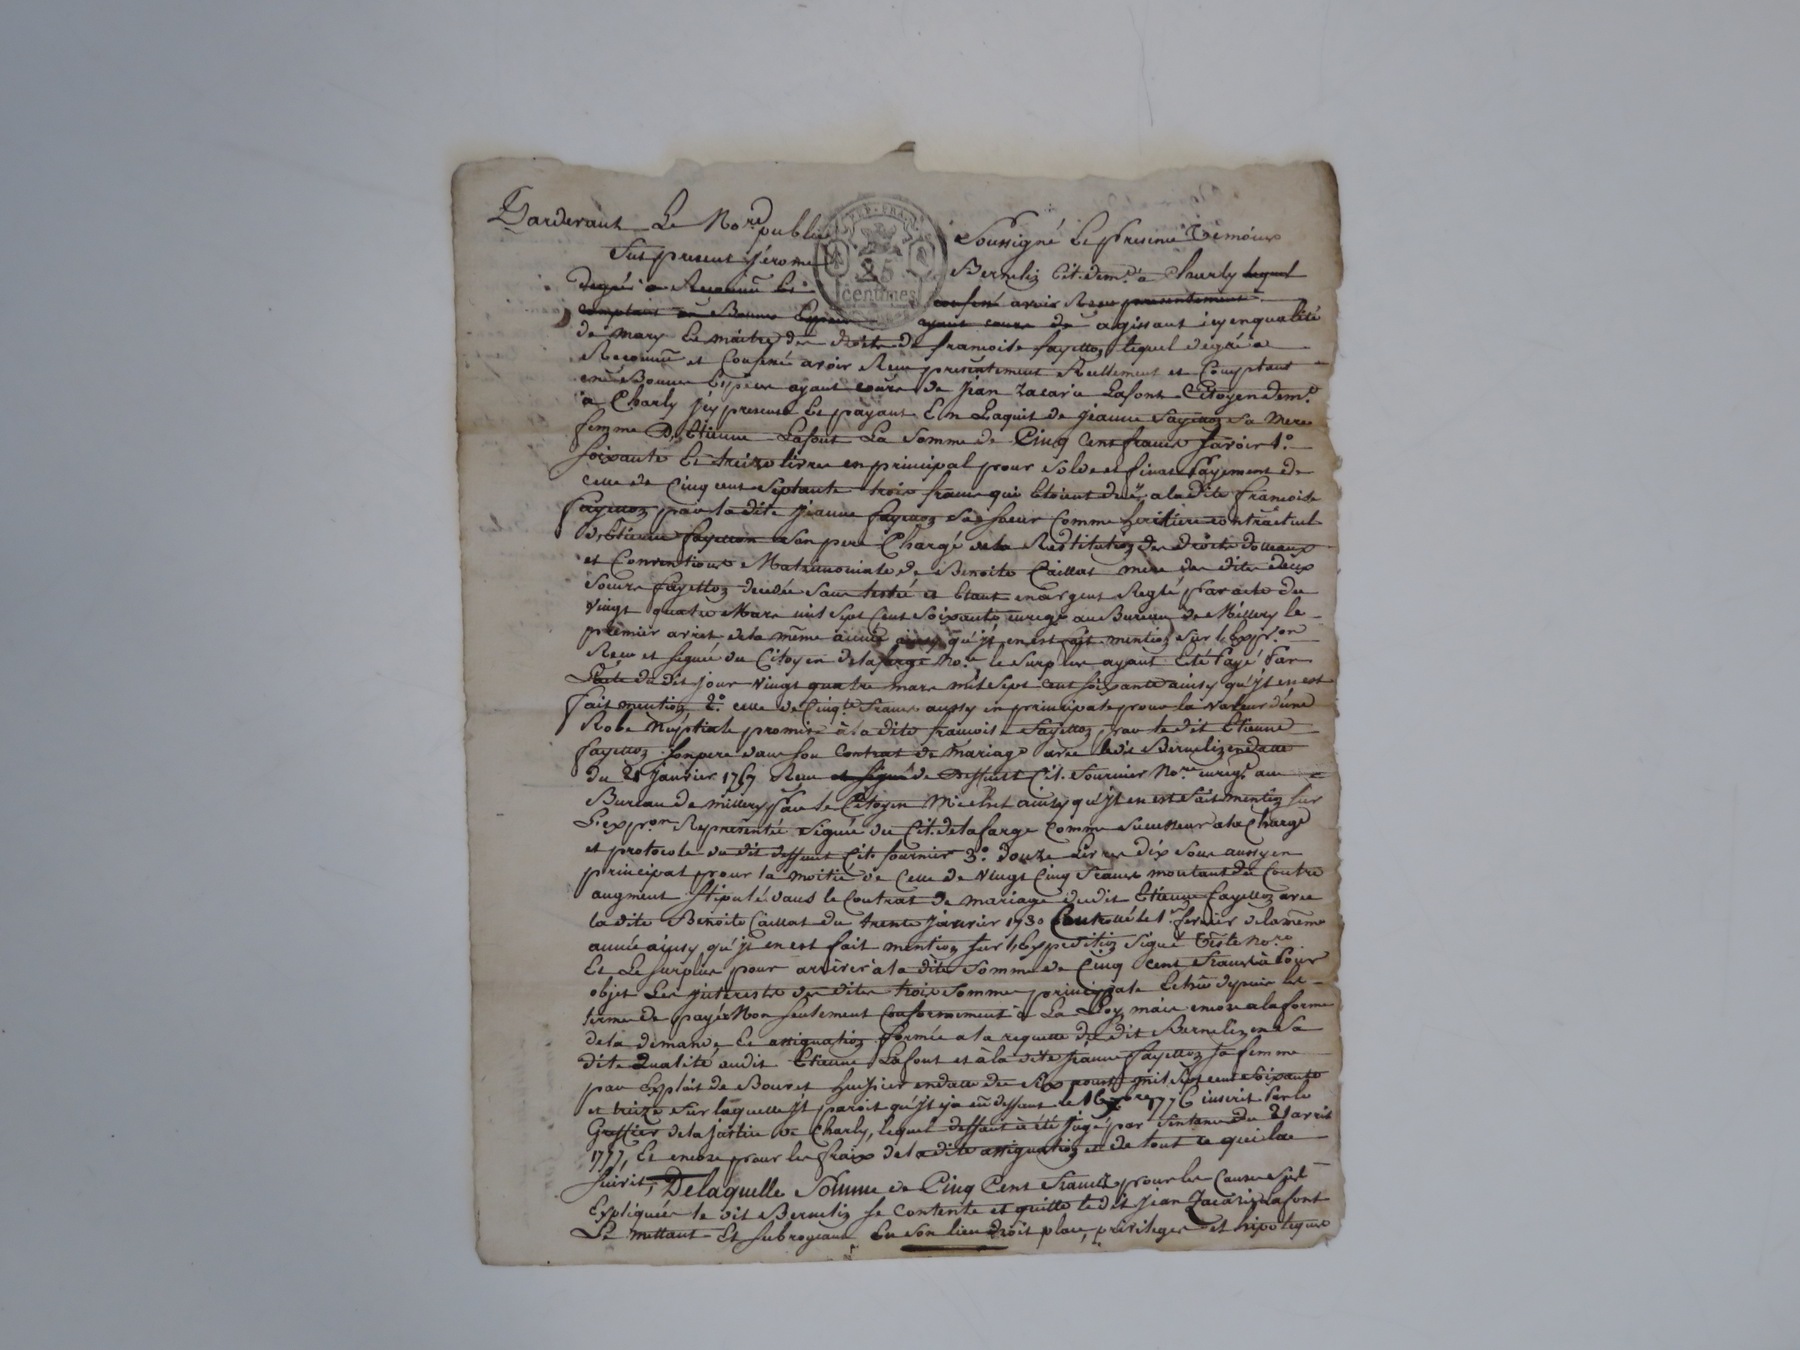 Pardevant Le No.re public Soussigné Et presens Temoins
REP. FRA.
25
centimes
Fut present Jérome Bernelin Cit. dem.t a Charly lequel
degré a Reconnu Et confessé avoir Receu presentement
comptant en Bonnes Especes ayant cours de agissant icy en qualité
de mary Et maitre des droits de francoise fayetton lequel degré a
Reconnu et Confessé avoir Receu presentement Reellement et Comptant
en Bonnes Especes ayant cours de Jean Zacarie Lafont Citoyen dem.t
a Charly jcy present Et payant En Laquit de jeanne fayetton Sa Mere
femme D'Etienne Lafont La Somme de Cinq Cent francs Savoir 1.o
Soixante Et treize livres en principal pour Solde et final Payement de
celle de Cinq cent Septante trois francs qui Etoient dues a la dite francoise
fayetton par la dite jeanne fayetton Sa Soeur Comme heritiere contractuel
d'Etienne fayetton Son pere Chargé de la Restitution des droits dotteaux
et Conventions Matrimoniale de Benoite Caillat mere des dites deux
Soeurs fayetton decedée Sans testé et Etant en argent Reglé par acte du
vingt quatre Mars mil Sept Cent Soixante enreg.é au Bureau de Millery le
premier avril de la même année ainsy qu'jl en est fait mention Sur l'Exp.on
Receu et Signée du Citoyen delafarge No.re le Surplus ayant Eté Payé Par
L'acte du dit jour vingt quatre mars mil Sept cent Soixante ainsy qu'jl en est
fait mention 2.o celle de Cinq.te francs aussy en principale pour la valeur d'une
Robe Nuptiale promise à la dite francoise fayetton par le dit Etienne
fayetton Son pere dans Son Contrat de mariage avec ledit Bernelin en datte
du 21 Janvier 1767 Receu et Signé de Deffunt Cit. fournier No.re enreg.é au
Bureau de millery Par le Citoyen Michel ainsy qu'jl en est fait mention Sur
L'exp.on Representée Signée du Cit. delafarge Comme Successeur a la Charge
et protocole du dit deffunt Cit. fournier 3.o douze Livres dix Sous aussy en
principal pour la moitié de Celle de vingt Cinq francs montant du Contre
augment Stipulé dans le Contrat de mariage du dit Etienne fayetton avec
la dite Benoite Caillat du trente Janvier 1730 Controllé le 1.er fevrier de la même
année ainsy qu'jl en est fait mention Sur l'Expedition Signé No.re
Et Le Surplus pour arriver a la dite Somme de Cinq cent francs à Pour
objet Les jnterests des dites trois Sommes principale Echus depuis le
terme de payés Non Seulement Conformement à La Loy mais encore a la forme
de la demande Et assignation formée a la requette du dit Bernelin en Sa
dite Qualité audit Etienne Lafont et à la dite jeanne fayetton Sa femme
par Exploit de Bouret huissier en datte du Six aoust mil Sept cent Soixante
et treize Sur laquelle jl paroit qu'jl y a eu deffaut le 1776 inscrit Par le
Greffier de la justice de Charly, lequel deffaut a été jugé par Sentence du 21 avril
1777, Et encore pour les fraix de la dite assignation et de tout ce qui la
Suivit, De laquelle Somme de Cinq Cent francs pour les Causes
Expliquées le dit Bernelin Se Contente et quitte le dit Jean Zacarie Lafont
Le mettant Et Subrogeant En Son lieu Droit place, privileges et hipoteques